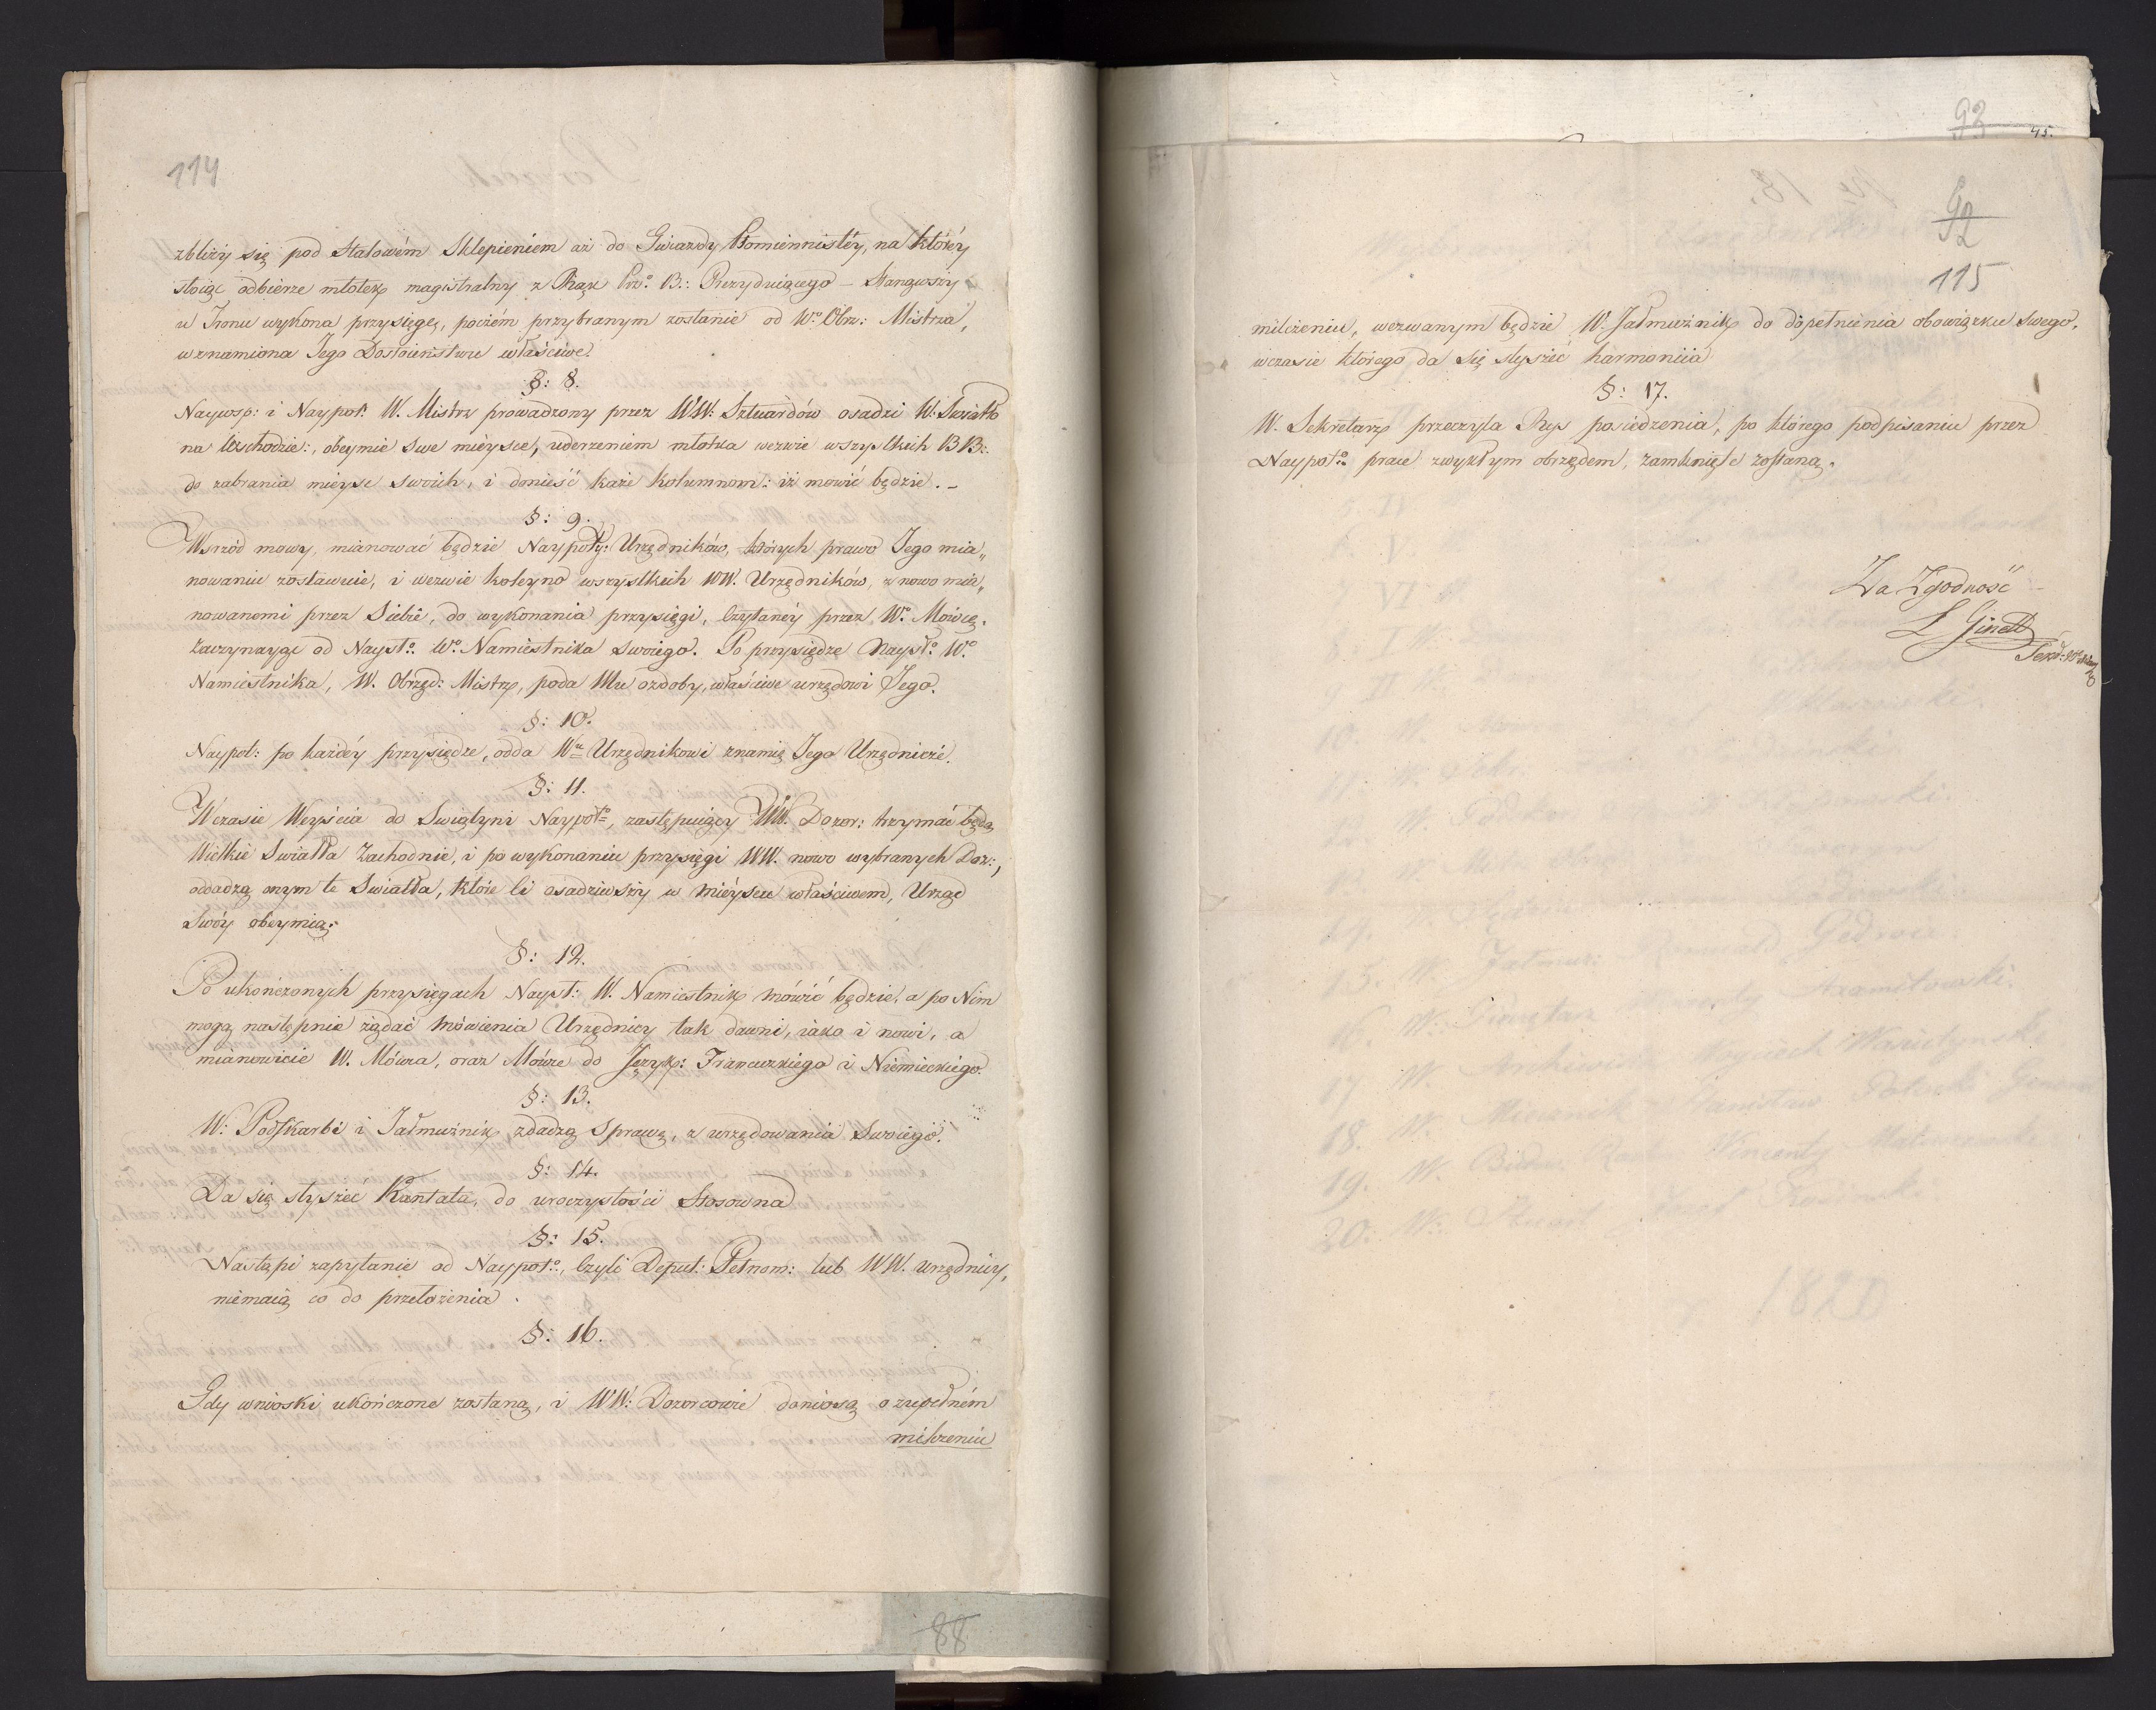 114
zbliży się pod Stalowém Sklepieniem aż do Gwiazdy Płomiennistéy, na któréy
stoiąc odbierze młotek magistralny z Rąk Prz.° B.: Prezyduiącego – Stanąwszy
u Tronu wykona przysięgę, poczém przybranym zostanie od W.° Obrz: Mistrza,
w znamiona Jego Dostoieństwu właściwe.
§: 8.
Naywsp: i Naypot: W. Mistrz prowadzony przez WW: Sztuardów osadzi W: Swiatło
na Wschodzie:, obeymie swe mieysce, uderzeniem młotka wezwie wszystkich BB:.
do zabrania mieysc swoich, i donieść każe kolumnom: iż mowić będzie. –
§: 9.
Wsrzód mowy, mianować będzie Naypotę: Urzędników, których prawo Jego mia„
nowaniu zostawuie, i wezwie koleyno wszystkich WW. Urzędników, z nowo mia„
nowanemi przez Siebie, do wykonania przysięgi, czytanéy przez W.° Mówcę.
Zaczynaiąc od Nayst.° W.° Namiestnika swoiego. Po przysiędze Nayst.° W.°
Namiestnika, W. Obrzęd: Mistrz, poda Mu ozdoby, właściwe urzędowi Jego.
§: 10.
Naypot: po każdéy przysiędze, odda W.u Urzędnikowi znamię Jego Urzędnicze.
§: 11.
W czasie Weyścia do Swiątyni Naypot.°, zastępuiący WW. Dozor: trzymać będą
Wielkie Swiatła Zachodnie, i po wykonaniu przysięgi WW. nowo wybranych Doz:,
oddadzą onym te Swiatła, które Ci osadziwszy w mieyscu właściwem, Urząd
Swóy obeymią.
§: 12.
Po ukończonych przysięgach Nayst: W. Namiestnik mówić będzie, a po Nim
mogą następnie żądać mówienia Urzędnicy tak dawni, iako i nowi, a
mianowicie W. Mówca, oraz Mówce do Język: Francuzkiego i Niemieckiego.
§: 13.
W: Podskarbi i Jałmużnik, zdadzą sprawę, z urzędowania Swoiego.
§: 14.
Da się słyszec Kantata, do uroczystości Stosowna
§: 15.
Nastąpi zapytanie od Naypot.°, czyli Deput: Pełnom: lub WW. urzędnicy,
niemaią co do przełożenia.
§: 16.
Gdy wnioski ukończone zostaną, i WW: Dozorcowie doniosą o zupełném
milczeniu
88
93
45.
92
115
milczeniu, wezwanym będzie W. Jałmużnik do dopełnienia obowiązku swego,
w czasie którego da się słyszeć harmoniia
§: 17.
W. Sekretarz przeczyta Rys posiedzenia, po którego podpisaniu przez
Naypot.° prace zwykłym obrzędem, zamknięte zostaną.
Za Zgodność
L Ginett